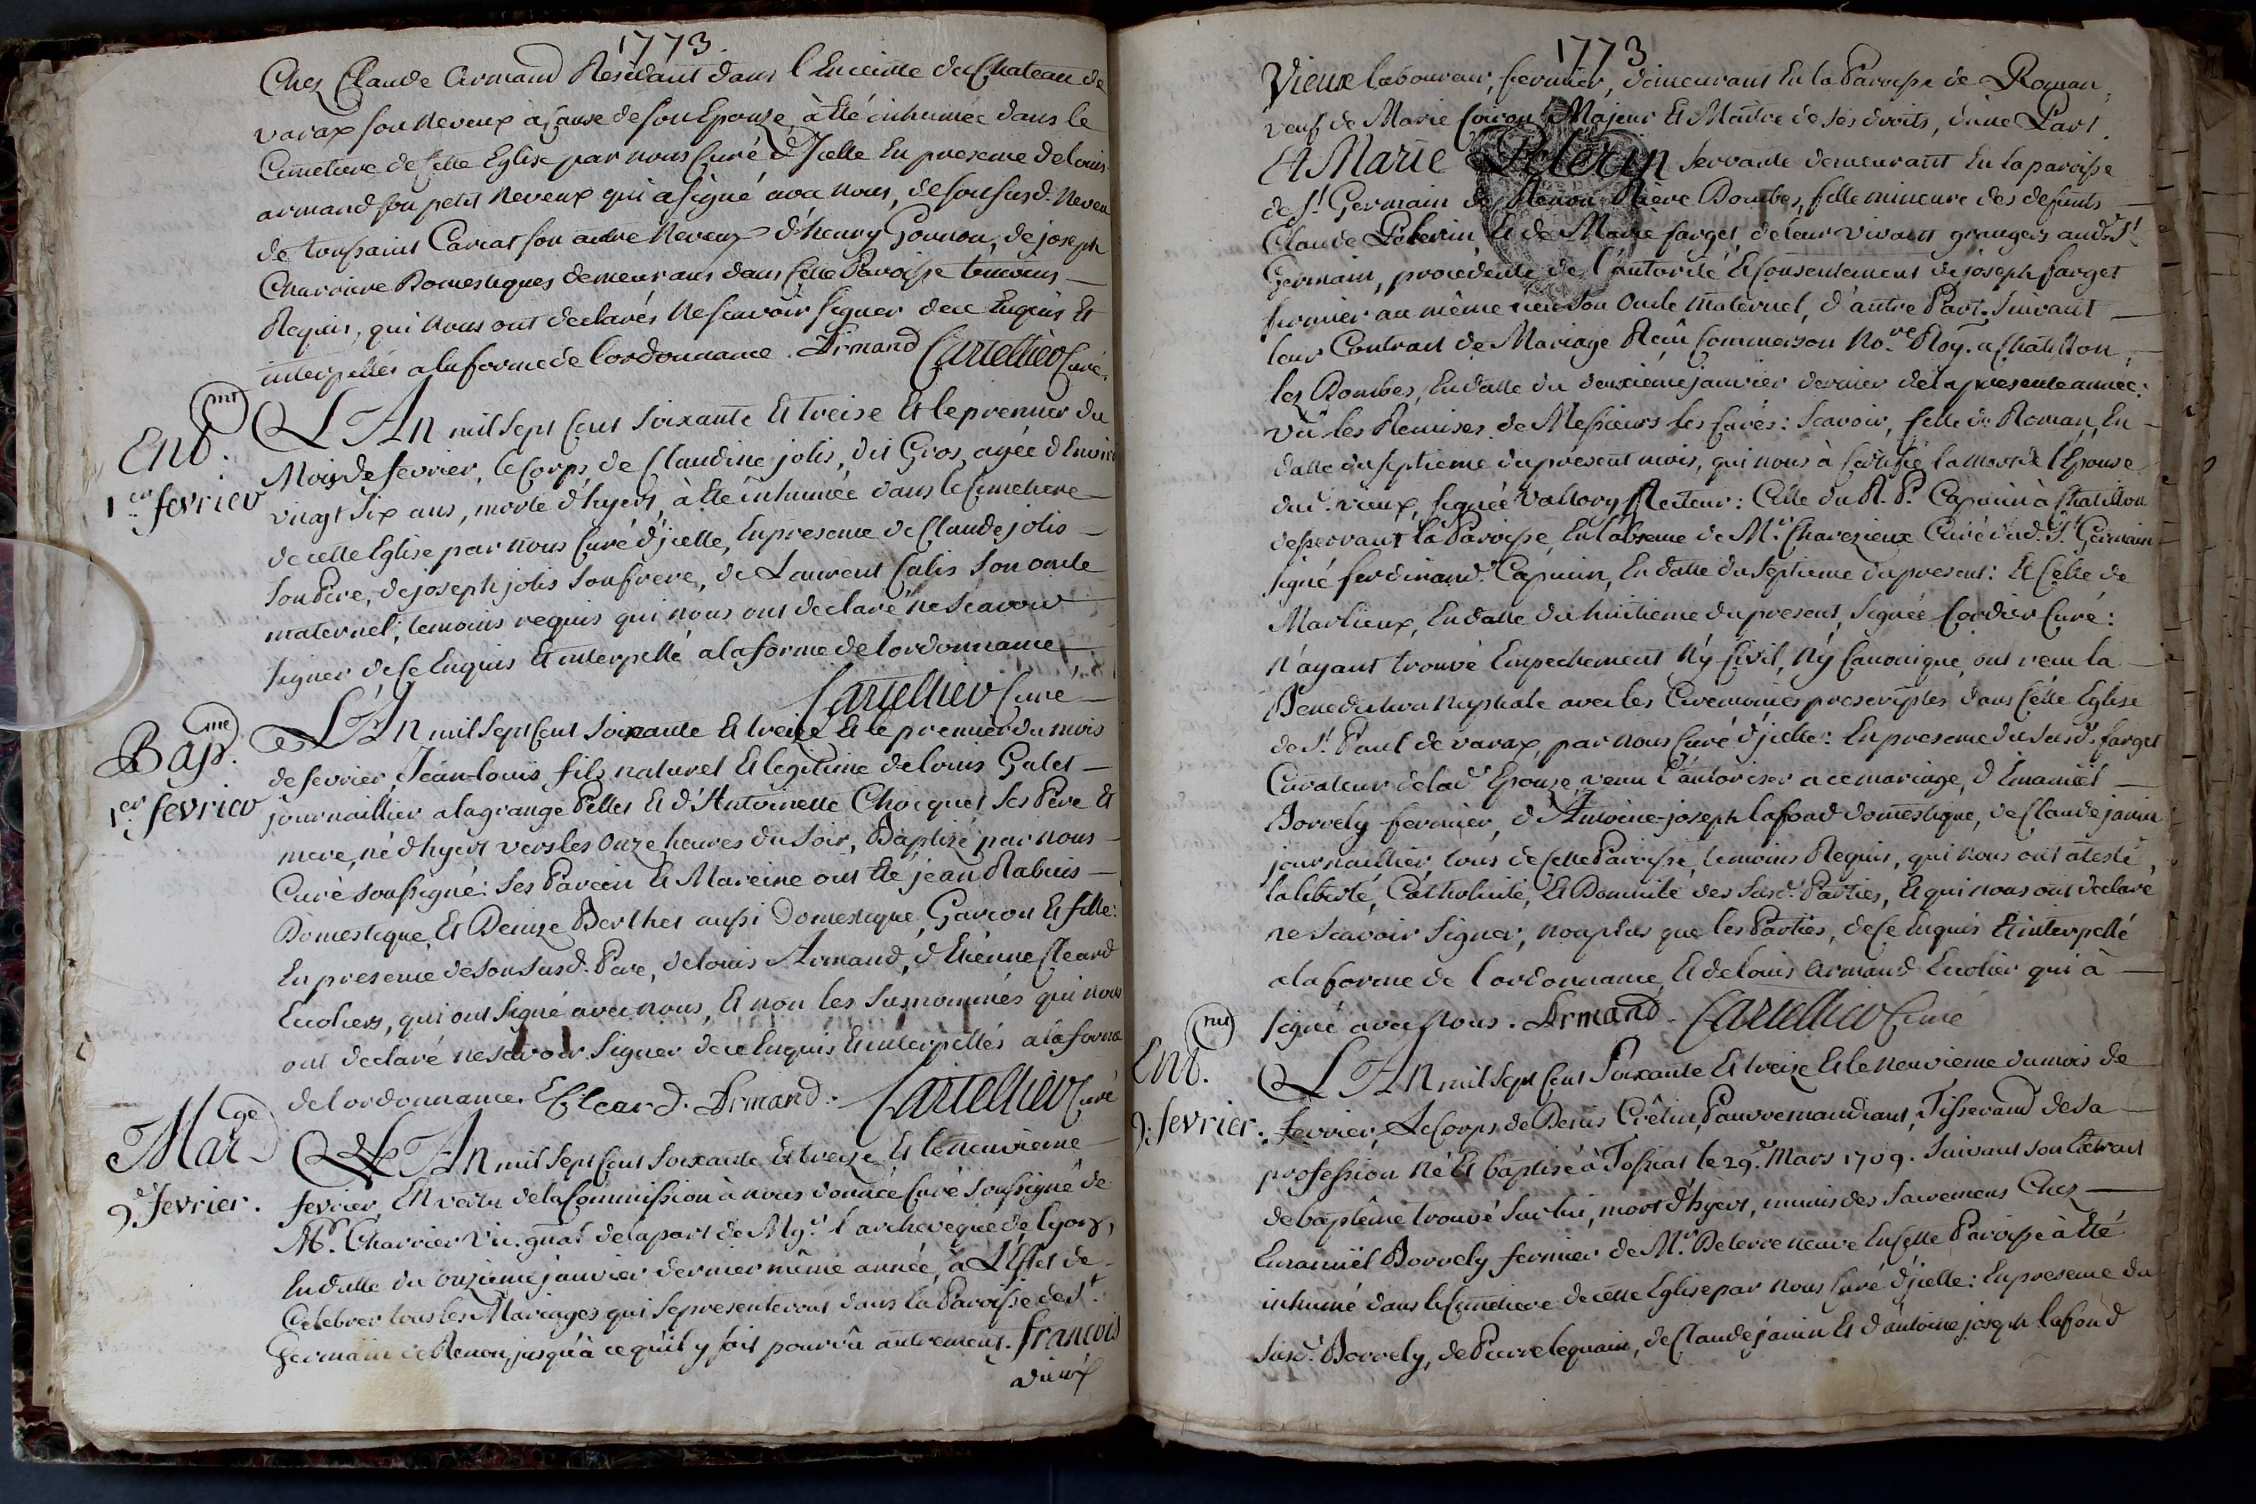 1773.
Chez Claude Armand Residant dans l'Enceinte du Chateau de
varax son neveux a cause de son Epouse, à été inhumée dans le
Cimetiere de Cette Eglise par nous Curé d'Icelle En presence de Louis
armand son petit Neveux qui a signé avec nous, de son susd. Neveu
de toussaint Carcat son autre Neveux d'henry Gonnon, de joseph
Charoire Domestiques demeurans dans Cette Paroisse témoins
Requis, qui Nous ont declarés Ne scavoir signer de ce Enquis Et
interpellés a la forme de l'ordonnance. Armand Cartellier Curé.
Ent.mt
1er fevrier
L'An mil sept Cent soixante Et treise Et le premier du
Mois de fevrier, le Corps de Claudine jolis, dit Gros agée d'Environ
vingt six ans, morte d'hyert, à été inhumée dans le Cimetiere
de cette Eglise par nous Curé d'jcelle, En presence de Claude jolis
son Pere, de joseph jolis son frere, de Laurent Calis son oncle
maternel, temoins requis qui nous ont declaré ne scavoir
signer de Ce Enquis Et interpellé a la forme de l'ordonnance
Cartellier Curé
Bap.me
1er fevrier
L'An mil sept Cent soixante Et treize Et le premier du mois
de fevrier, Jean-louis fils naturel Et legitime de louis Galet
journaillier a la grange Pelles Et d'Antoinette Chocquet ses Pere Et
mere, né d'hyert vers les onze heures du soir, Baptizé par nous
Curé soussigné: ses Parein Et Mareine ont été jean Rabuis
Domestique, Et Denize Berthet aussi Domestique, Garcon Et fille:
En presence de son susd. Pere, de louis Armand, d'Etiénne Cleard
Ecoliers, qui ont signé avec nous, Et non les susnommés qui nous
ont declaré ne scavoir signer de ce Enquis Et interpellés a la forme
de l'ordonnance. E Cleard. Armand. Cartellier Curé
Mar.ge
9.e fevrier.
L'An mil sept Cent soixante Et treize Et le neuvieme
fevrier, En vertu de la Commission à nous donnée Curé soussigné de
Mr. Charrier Vic. gnal de la part de Mgr. l'archeveque de lyon,
En datte du onzieme janvier dernier même année, à L'Effet de
Celebrer tous les Mariages qui se presenteront dans la Paroisse de St.
Germain de Renon, jusqu'à ce qu'il y soit pourvû autrement. francois
vieux
1773
Vieux laboureur, fermier, demeurant En la Paroisse de Roman,
veuf de Marie Coiron Majeur Et Maitre de ses droits, d'une Part.
Et Marie Pelerin servante demeurant En la paroisse
de St. Germain de Renon Riére Bombes, fille mineure des defunts
Claude Pelerin, Et de Marie farget de leur vivant grangers aud. St.
Germain, procedente de l'autorité Et Consentement de joseph farget
fermier au même lieu son oncle maternel, d'autre Part. Suivant
leur Contrat de Mariage Recû Commerson No.re Roy. a Chatillon
les Dombes, En datte du deuxieme janvier dernier de la presente année:
Vû les Remises de Messieurs les Curés: scavoir, Celle de Roman, En
datte du septieme du present mois, qui nous à Certifié la mort de l'Epouse
dud. vieux, signée Vallory Recteur: Celle du R. P. Capucin à Chatillon
desservant la Paroisse, En l'absence de Mr. Charezieux Curé dud. St. Germain
signé ferdinand. Capucin, En datte du septieme du present: Et Celle de
Marlieux, En datte du huitieme du present, signée Cordier Curé:
n'ayant trouvé Empechement Ny Civil, Ny Canonique, ont recu la
Benediction Nuptiale avec les Ceremonies prescriptes dans Cette Eglise
de St. Paul de varax, par nous Curé d'jcelle: En presence du susd. farget
Curateur de lad. Epouse, venu l'autoriser a ce mariage, d'Emanuël
Borrely fermier, d'Antoine-joseph lafond domestique, de Claude janin
journaillier, tous de Cette Paroisse, temoins Requis, qui nous ont atesté
la liberté, Catholicité, Et Domicile des susd. Parties, Et qui nous ont declaré
ne scavoir signer, non plus que les Parties, de Ce Enquis Et interpellé
a la forme de l'ordonnance, Et de louis Armand Ecolier qui à
signé avec Nous. Armand. Cartellier Curé
Ent.mt
9. fevrier.
L'An mil sept Cent soixante Et treize Et le neuvieme du mois de
fevrier, Le Corps de Denis Crêtin, Pauvre mandiant, Tisserand de sa
profession né Et baptisé à Tossiat le 29.e Mars 1709. suivant son Extrait
de baptême trouvé sur lui, mort d'hyert, munis des sacremens Chez
Emanuël Borrely fermier de Mr. Belerre neuve En Cette Paroisse à été
inhumé dans le Cimetiere de cette Eglise par nous Curé d'jcelle: En presence du
susd. Borrely, de Pierre lequain, de Claude janin Et d'antoine joseph lafond